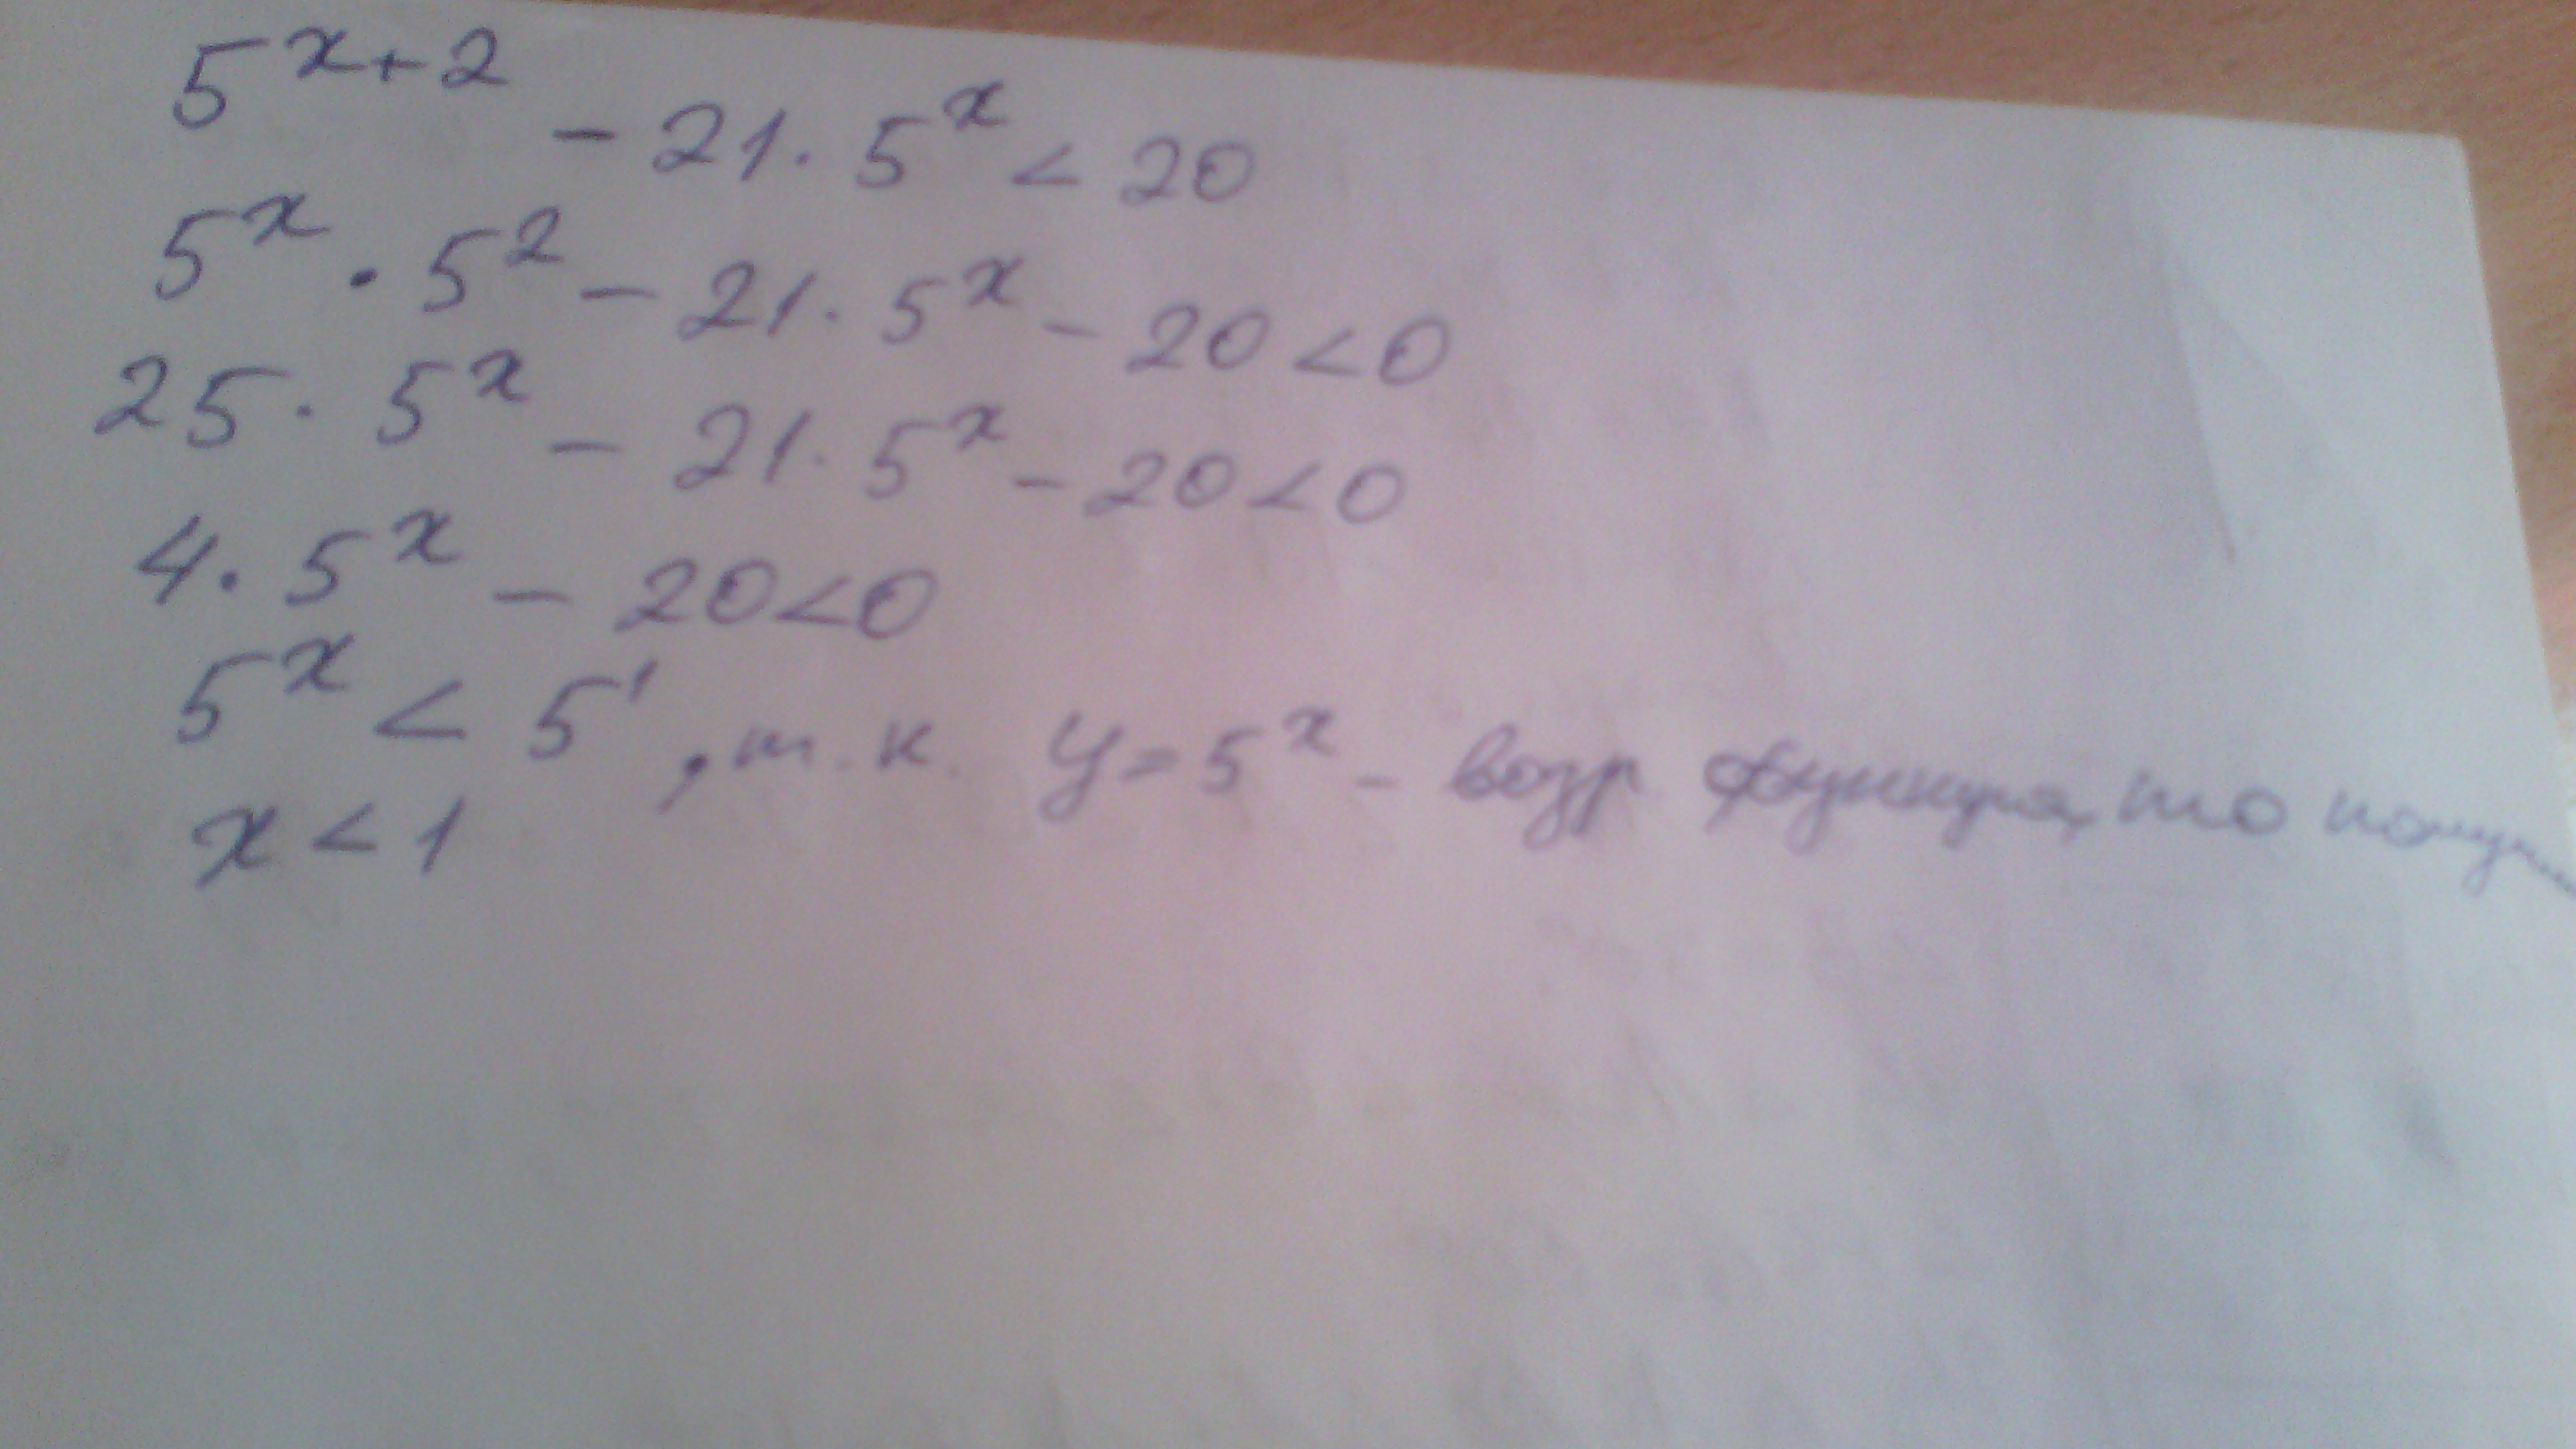 5^{x+2} - 21 · 5^x < 20
5^x · 5^2 - 21 · 5^x - 20 < 0
25 · 5^x - 21 · 5^x - 20 < 0
4 · 5^x - 20 < 0
5^x < 5^1, т.к. y = 5^x - возр функция, то
x < 1